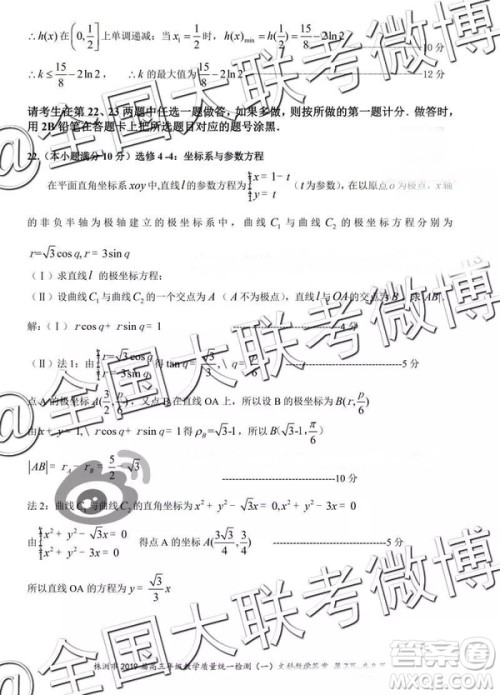 ∴h(x)在(0,1/2]上单调递减;当x₁=1/2时,h(x)min=h(1/2)=15/8-2ln2 ----10分
∴k≤15/8-2ln2, ∴k的最大值为15/8-2ln2 ----12分
请考生在第22、23两题中任选一题做答,如果多做,则按所做的第一题计分.做答时,
用2B铅笔在答题卡上把所选题目对应的题号涂黑.
22.(本小题满分10分)选修4-4:坐标系与参数方程
在平面直角坐标系xoy中,直线l的参数方程为{x=1-t y=t (t为参数),在以原点o为极点,x轴
的非负半轴为极轴建立的极坐标系中,曲线C₁与曲线C₂的极坐标方程分别为
r=√3cosq, r=3sinq
(Ⅰ)求直线l的极坐标方程;
(Ⅱ)设曲线C₁与曲线C₂的一个交点为A(A不为极点),直线l与OA的交点为B,求|AB|.
解:(Ⅰ)rcosq+rsinq=1 ----4分
(Ⅱ)法1:由{r=√3cosq r=3sinq 得tanq=√3/3, ----5分
点A的极坐标A(3/2,p/6),又点B在直线OA上,所以设B的极坐标为B(r,p/6)
由x+y=1,\rcosq+rsinq=1得ρB=√3-1,所以B(√3-1,p/6)
|AB|=rA-rB=5/2-√3 ----10分
法2:曲线C₁与曲线C₂的直角坐标方程为x²+y²-√3x=0
由{x²+y²-√3x=0 得点A的坐标A(3√3/4,3/4) ----5分
所以直线OA的方程为y=√3/3x
株洲市2019届高三年级教学质量统一检测(一)文科数学答案 第7页
@全国大联考微博
@全国大联考微博